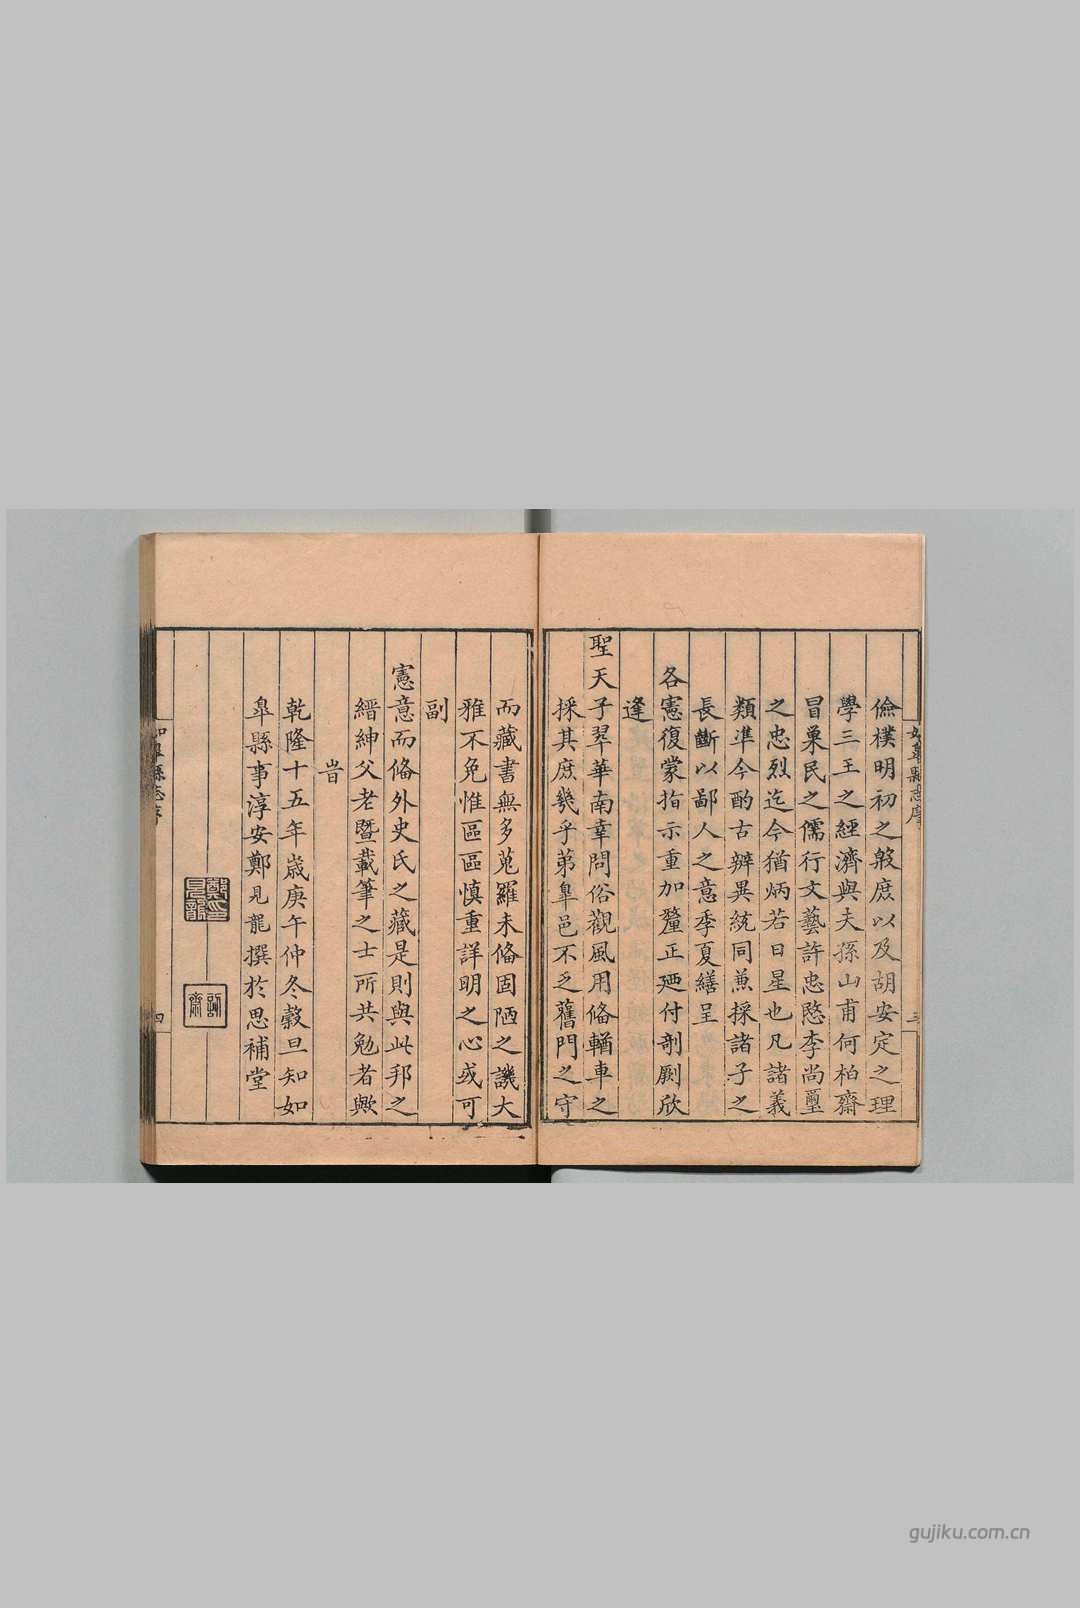 儉樸明初之殷庶以及胡安定之理
學三王之經濟與夫孫山甫何柏齋
冒巢民之儒行文藝許忠愍李尚璽
之忠烈迄今猶炳若日星也凡諸義
類準今酌古辨異統同兼採諸子之
長斷以鄙人之意季夏繕呈
各憲復蒙指示重加釐正廼付剞劂欣
逢
聖天子翠華南幸問俗觀風用俻輶車之
採其庶幾乎苐臯邑不乏舊門之守
如臯縣志序
三
而藏書無多蒐羅未俻固陋之譏大
雅不免惟區區慎重詳明之心或可
副
憲意而俻外史氏之藏是則與此邦之
縉紳父老暨載筆之士所共勉者歟
旹
乾隆十五年歲庚午仲冬穀旦知如
臯縣事淳安鄭見龍撰於思補堂
鄭印見龍
如臯縣志序
四
gujiku.com.cn